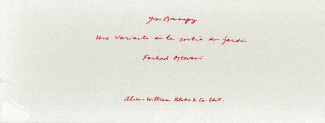 Yves Bonnefoy
Une variante de la sortie du jardin
Farhad Ostovani
Alice - William Blake & Co. Edit.